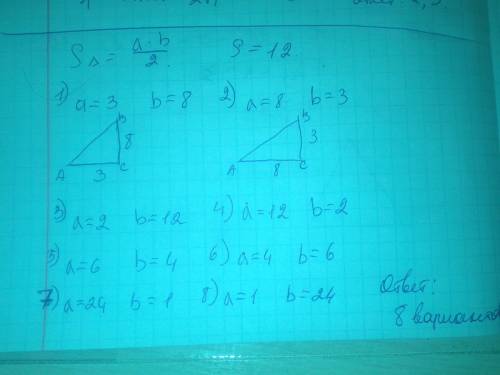 S△ = a·b/2 S = 12
1) a=3 b=8 2) a=8 b=3
B B
8 3
A 3 C A 8 C
3) a=2 b=12 4) a=12 b=2
5) a=6 b=4 6) a=4 b=6
7) a=24 b=1 8) a=1 b=24
Ответ:
8 вариантов